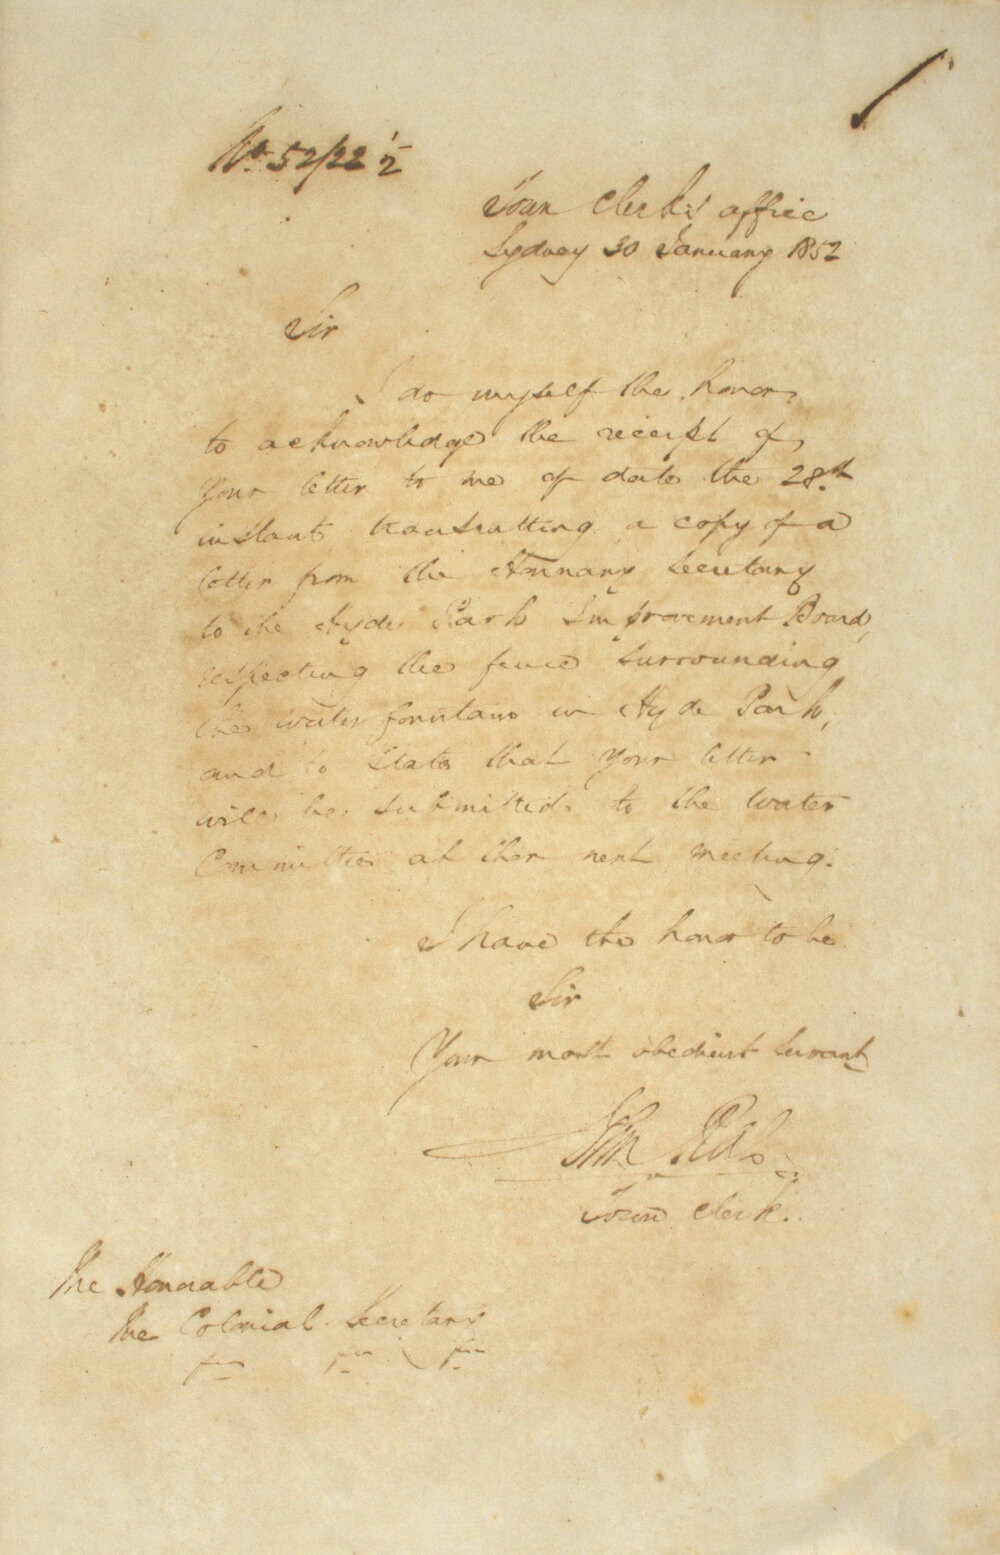 No. 52/22 1/2
Town Clerk's office
Sydney 30 January 1852
Sir
I do myself the honor
to acknowledge the receipt of,
your letter to me of date the 28th
instant transmitting a copy of a
letter from the Honnary Secretary
to the Hyde Park Improvement Board,
respecting the fence surrounding
the water fountain in Hyde Park,
and to state that your letter
will be submitted to the Water
Committee at ther next meeting.
I have the honor to be
Sir
Your most obedient servant
John
Town Clerk.
The Honorable
The Colonial Secretary